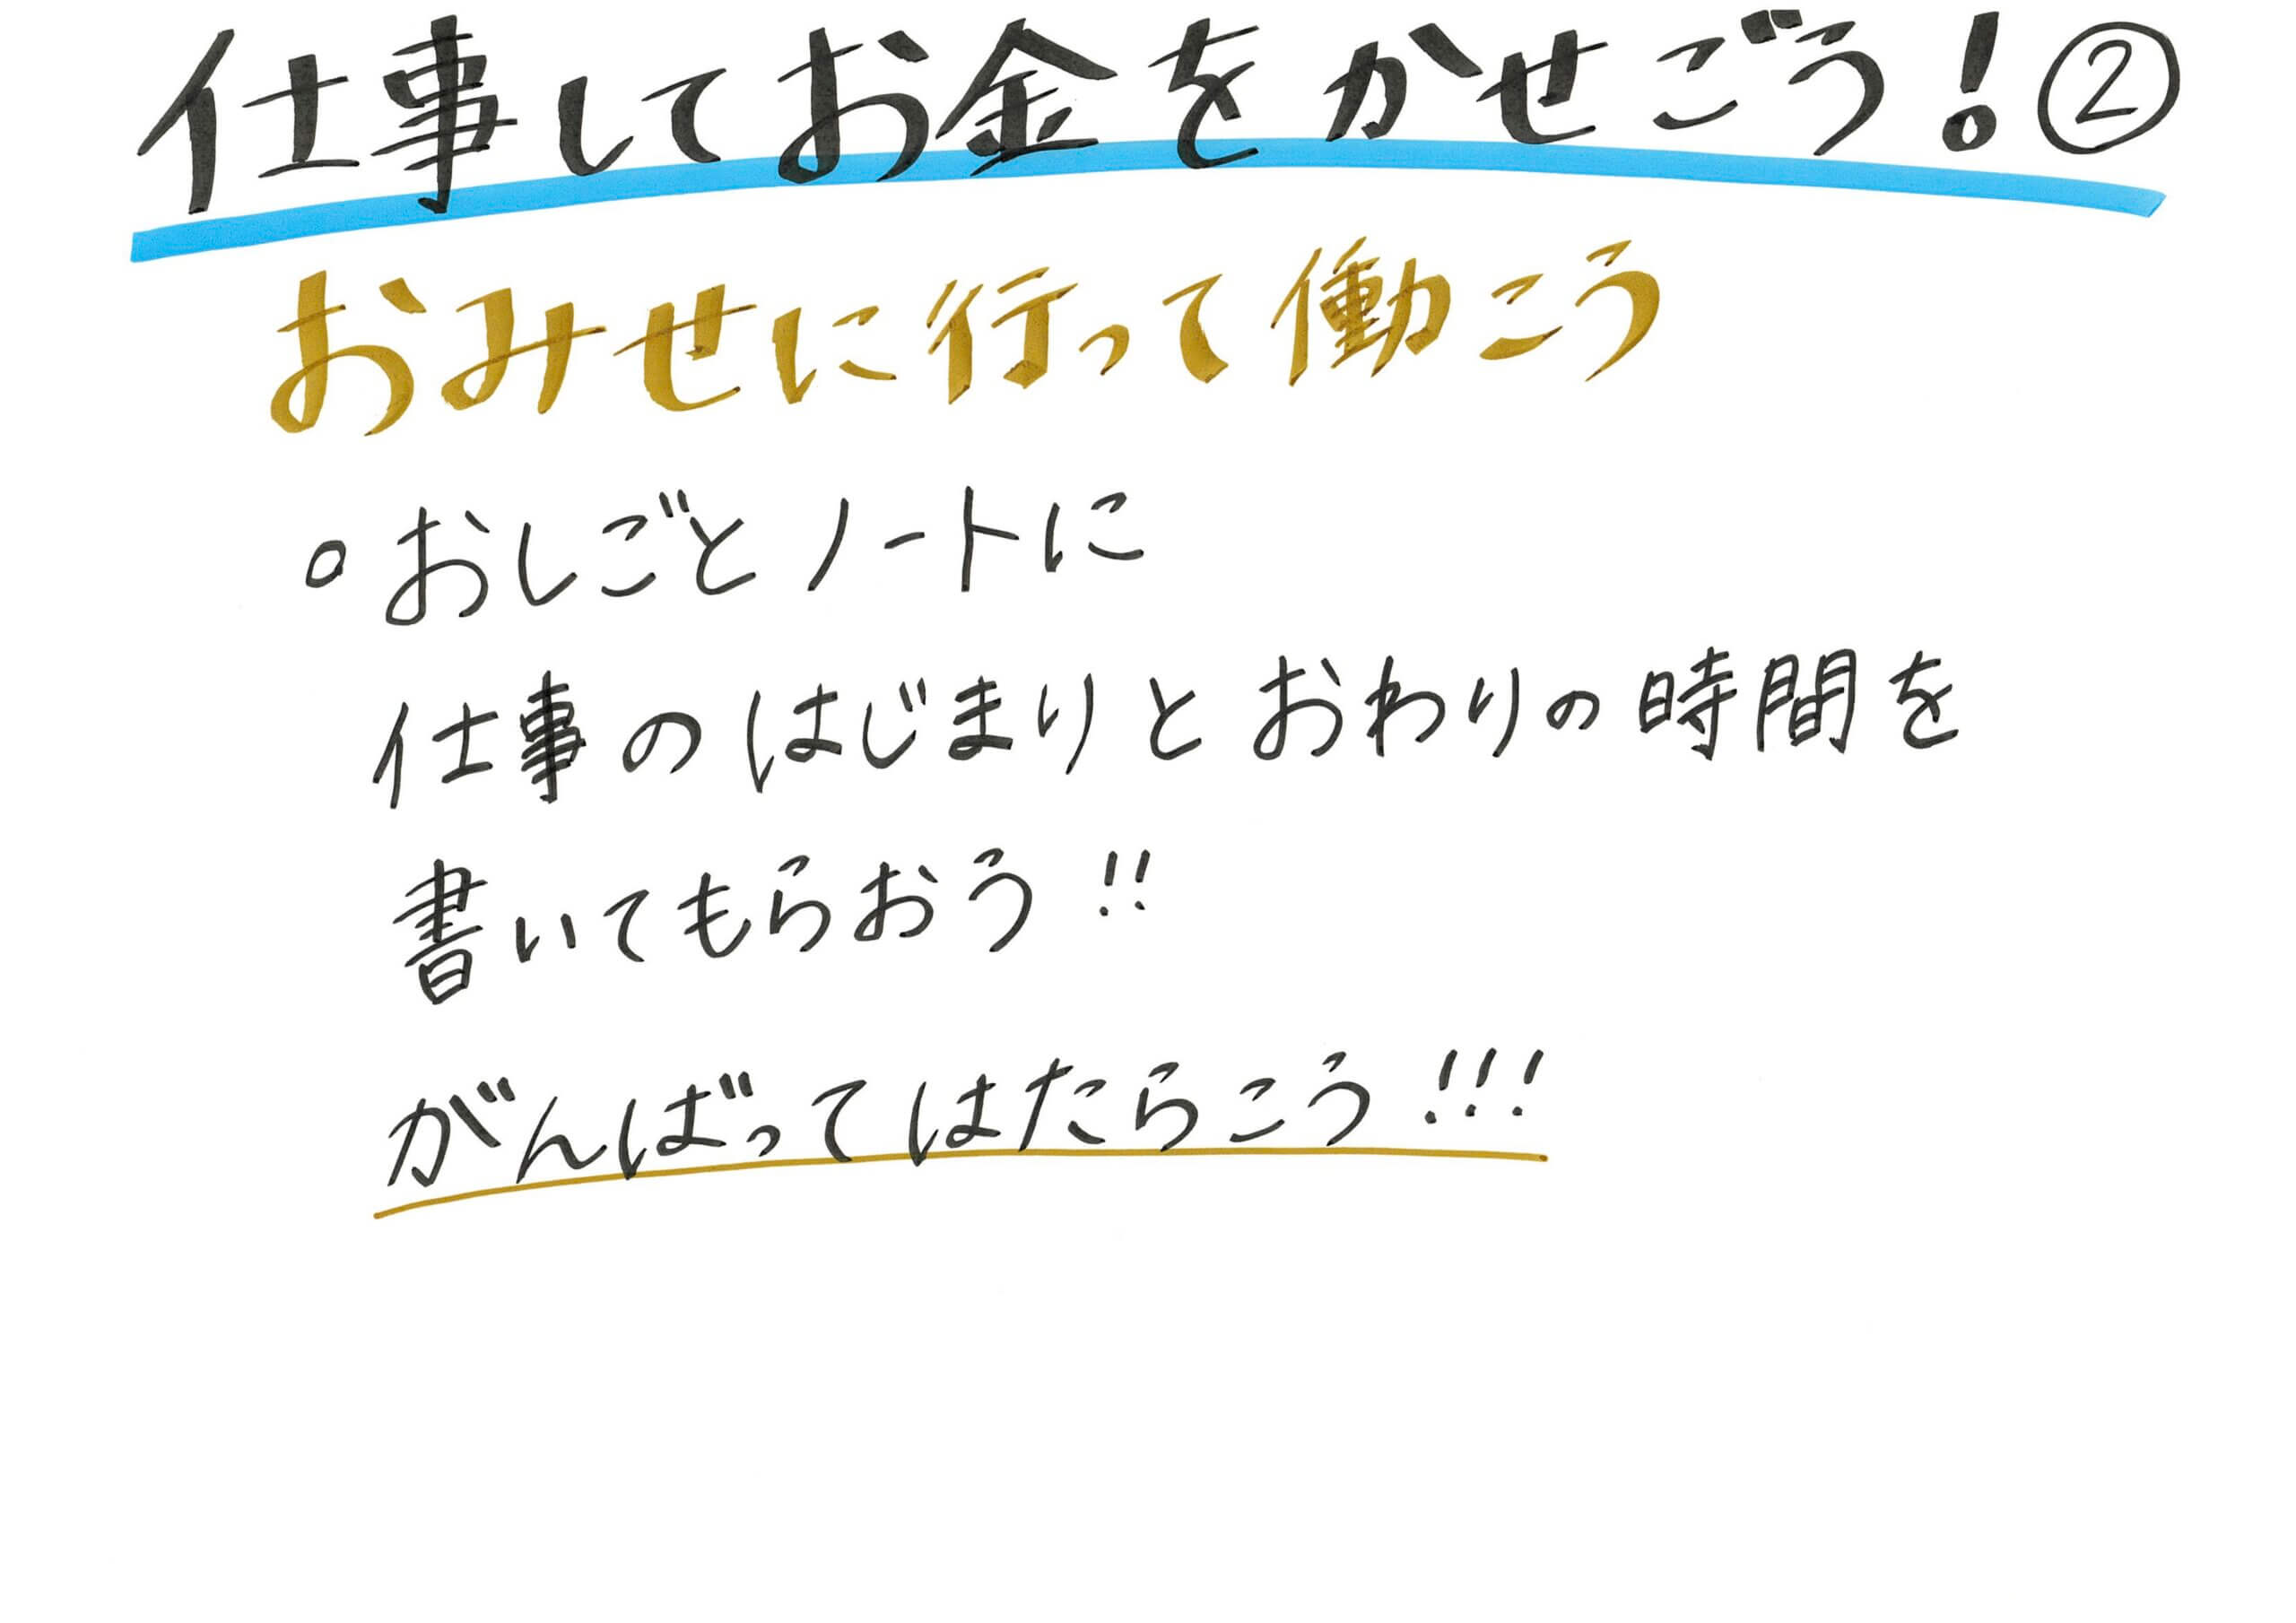 仕事してお金をかせごう!②
おみせに行って働こう
。おしごとノートに
仕事のはじまりとおわりの時間を
書いてもらおう!!
がんばってはたらこう!!!